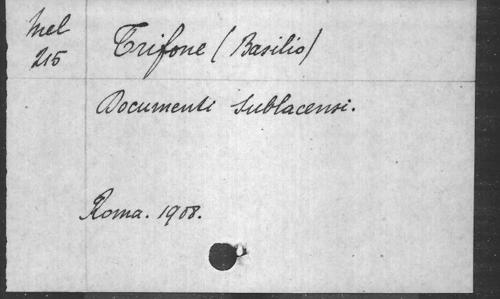 Mel
215
Trifone (Basilio)
Documenti Sublacensi.
Roma. 1908.